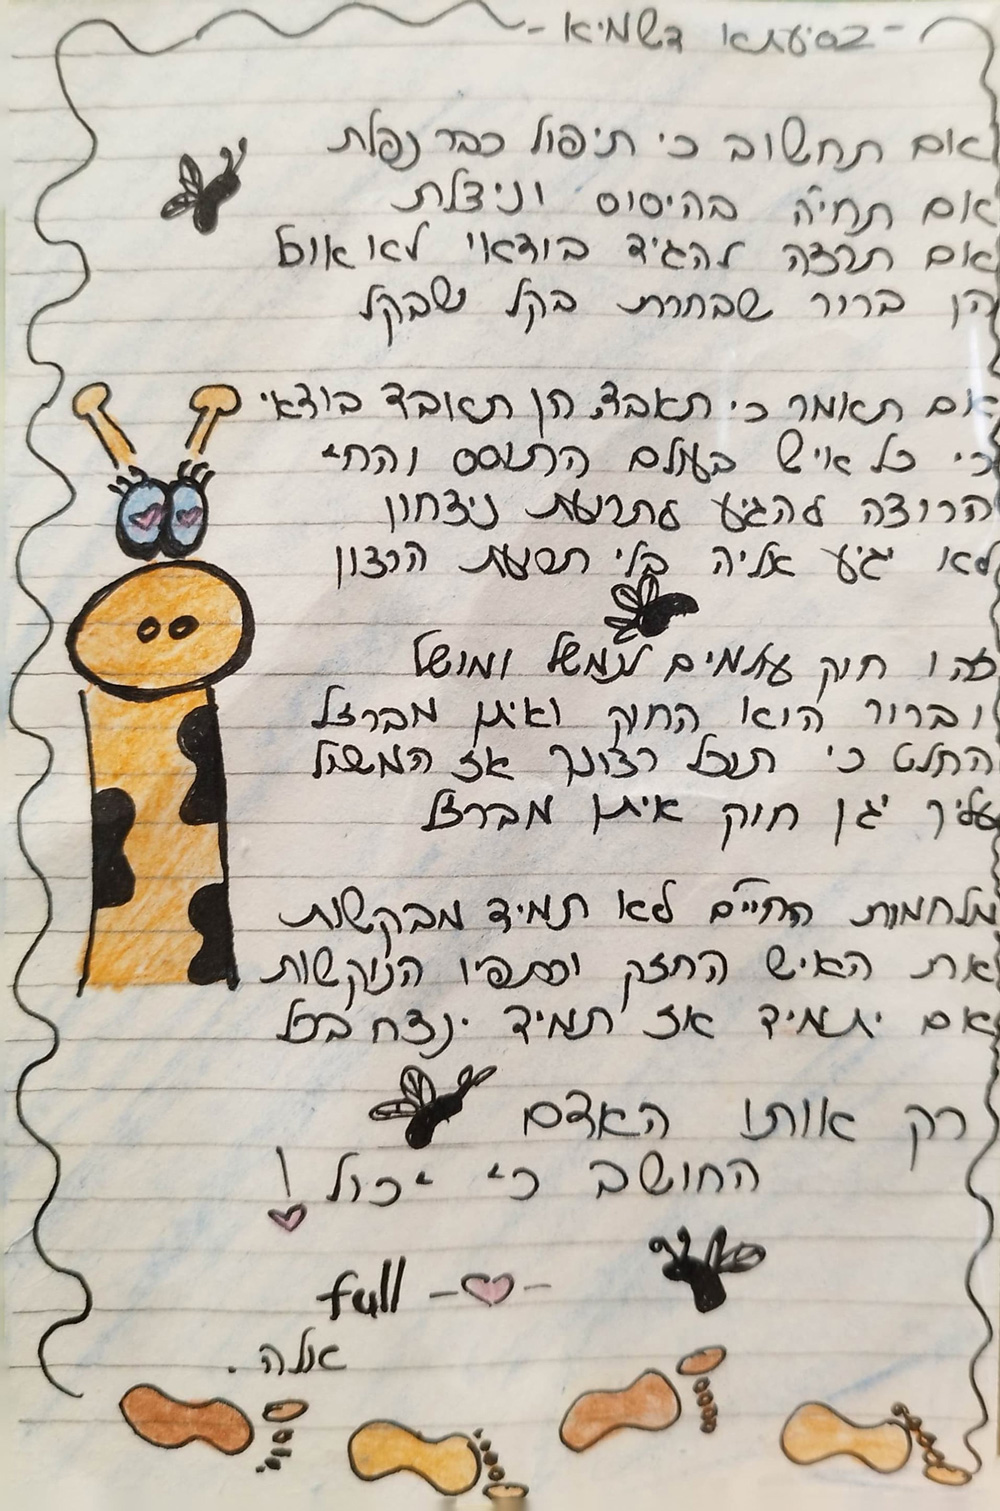 -בסיעתא דשמיא-
אם תחשוב כי תיפול כבר נפלת
אם תחיה בהיסוס וניצלת
אם תרצה להגיד בודאי לא אוכל
הן ברור שבחרת בקל שבקל
אם תאמר כי תאבד הן תאובד בודאי
כי כל איש בעולם התוסס והחי
הרוצה להגיע לתרועת ניצחון
לא יגיע אליה בלי תסעת הרצון
זהו חוק עולמים לנמשל ומושל
וברור הוא החוק ואיתן מברזל
החלט כי תוכל רצונך אז המשול
עליך יגן חוק איתן מברזל
מלחמות החיים לא תמיד מבקשות
את האיש החזק וכתפיו הנוקשות
אם יתמיד אז תמיד ינצח בכל
רק אותו האדם
החושב כי יכול!
full -♥-
אלה.